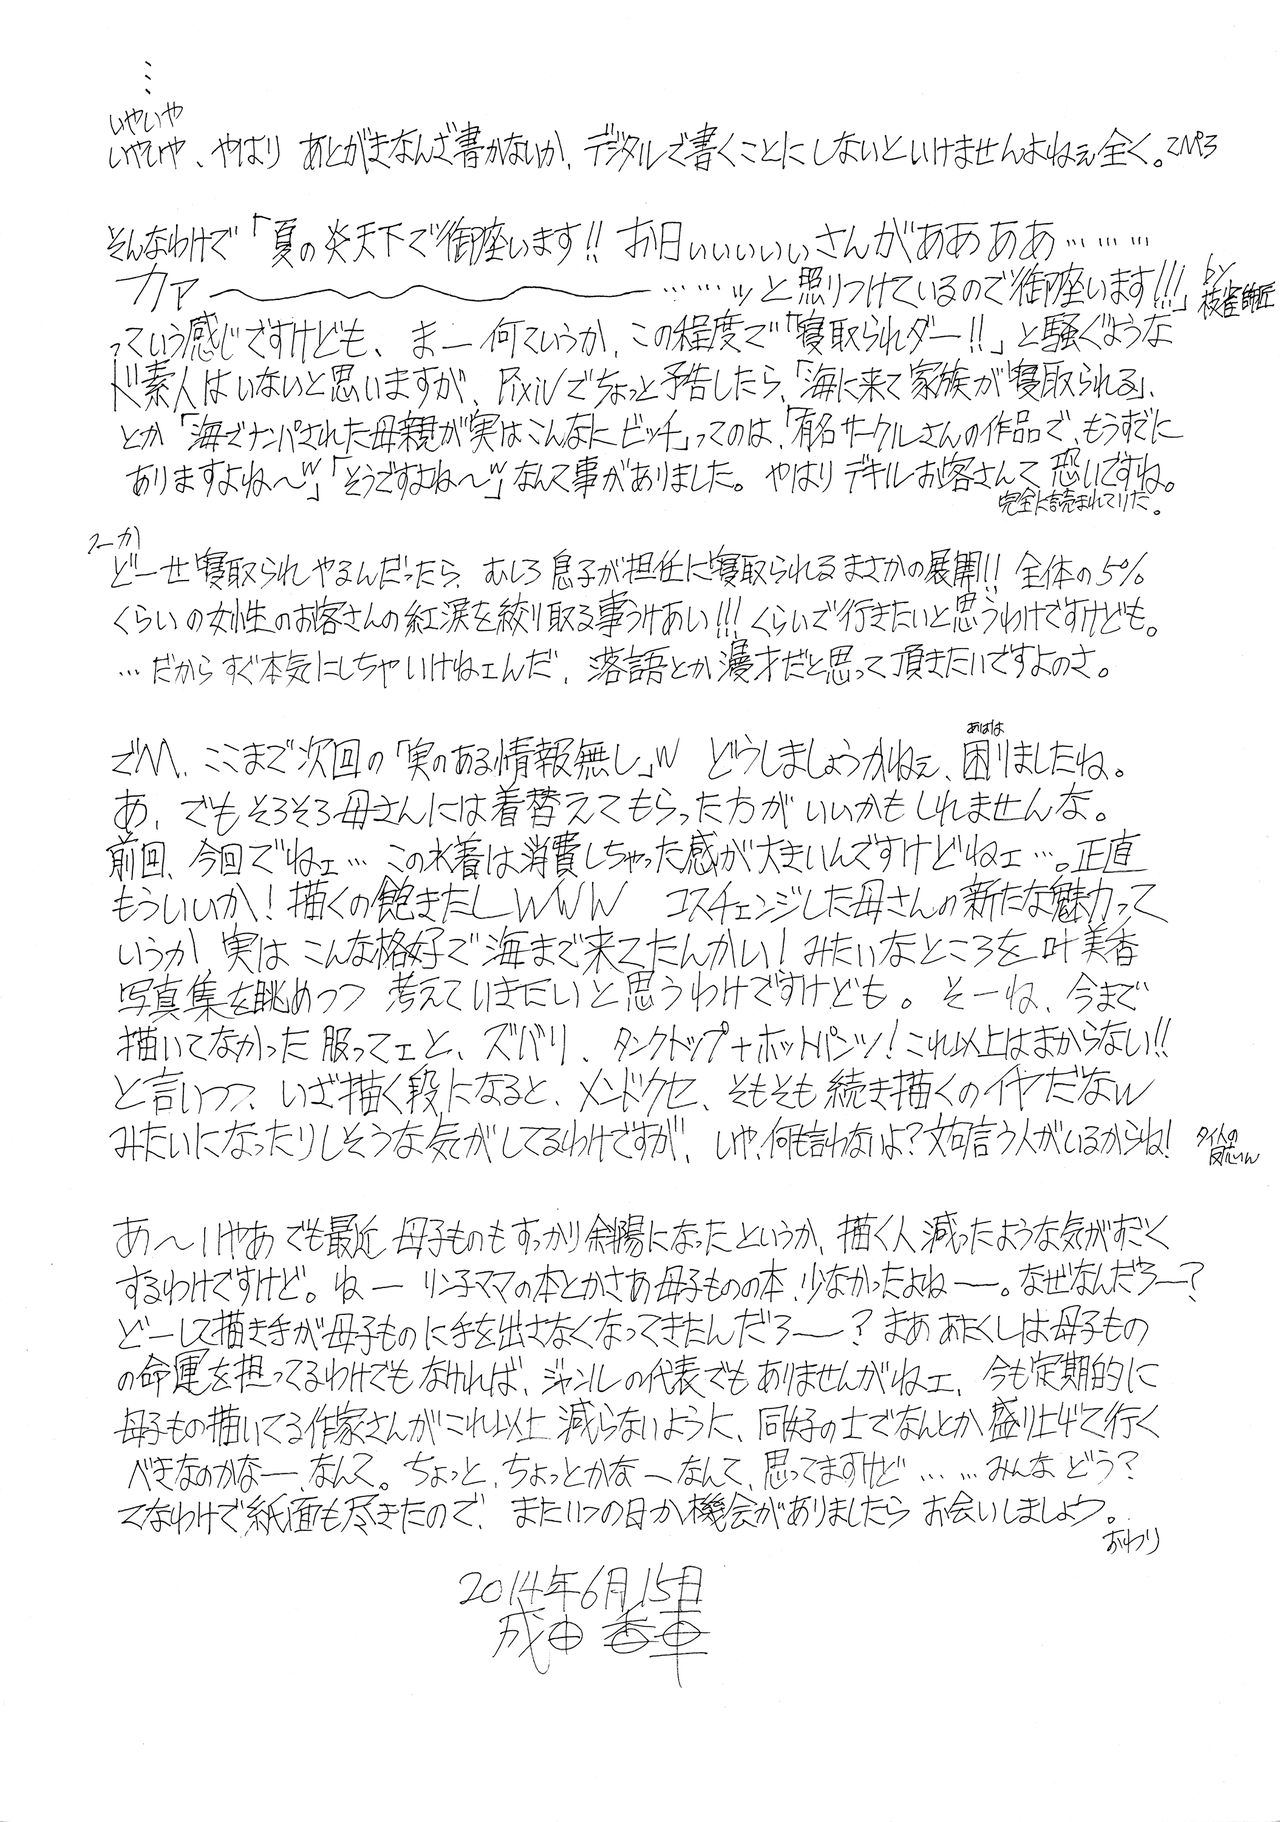 …
いやいや
いやいや、やはり あとがきなんざ書かないか、デジタルで書くことにしないといけませんよねぇ全く。
そんなわけで「夏の炎天下で御座います!! お日ぃぃぃぃぃさんがああああ………
カァ〜〜〜〜……ッと照りつけているので御座います!!!」by 枝雀師匠
っていう感じですけども、まー何ていうか、この程度で「寝取られダー!!」と騒ぐような
ド素人はいないと思いますが、Pixivでちょっと予告したら、「海に来て家族が寝取られる」、
とか「海でナンパされた母親が実はこんなにビッチ」ってのは、「有名サークルさんの作品で、もうすでに
ありますよね〜w」「そうですよね〜w」なんて事がありました。やはりデキルお客さんて恐いですね。
完全に読まれてりだ。
つーか
どーせ寝取られやるんだったら、むしろ息子が担任に寝取られるまさかの展開!! 全体の5%
くらいの女性のお客さんの紅涙を絞り取る事うけあい!!! くらいで行きたいと思うわけですけども。
…だからすぐ本気にしちゃいけねェんだ、落語とか漫才だと思って頂きたいですよのさ。
で\\\、ここまで次回の「実のある情報無し」w どうしましょうかねぇ、困りましたね。
あはは
あ、でもそろそろ母さんには着替えてもらった方がいいかもしれませんな。
前回、今回でねェ…この水着は消費しちゃった感が大きいんですけどねェ…。正直
もういいか!描くの飽きたしwww コスチェンジした母さんの新たな魅力って
いうか、実はこんな格好で海まで来てたんかい!みたいなところを叶美香
写真集を眺めつつ考えていきたいと思うわけですけども。そーね、今まで
描いてなかった服ってェと、ズバリ、タンクトップ+ホットパンツ!これ以上はまからない!!
と言いつつ、いざ描く段になると、メンドクセ、そもそも続き描くのイヤだなw
みたいになったりしそうな気がしてるわけですが、いや、何も言わないよ?文句言う人がいるからね!
あ〜いやあでも最近母子ものもすっかり斜陽になったというか、描く人減ったような気がすごく
するわけですけど。ねーリン子ママの本とかさあ母子ものの本、少なかったよねー。なぜなんだろー?
どーして描き手が母子ものに手を出さなくなってきたんだろー?まああたくしは母子もの
の命運を担ってるわけでもなければ、ジャンルの代表でもありませんがねェ、今も定期的に
母子もの描いてる作家さんがこれ以上減らないように、同好の士でなんとか盛り上げて行く
べきなのかなー、なんて。ちょっと、ちょっとかなーなんて、思ってますけど……みんなどう?
てなわけで紙面も尽きたので、またいつの日か機会がありましたらお会いしましょう。
おわり
2014年6月15日
成田香車